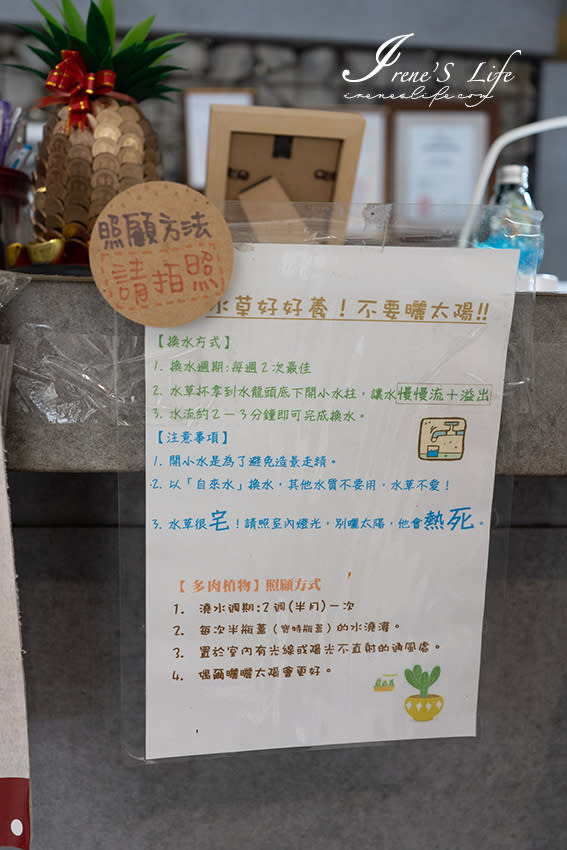 Irene'S Life
irenealife.com
照顧方法
請拍照
水草好好養！不要曬太陽!!
【換水方式】
1. 換水週期:每週2次最佳
2. 水草杯拿到水龍頭底下開小水柱，讓水慢慢流+溢出
3. 水流約2－3分鐘即可完成換水。
【注意事項】
1. 開小水是為了避免造景走精。
2. 以「自來水」換水，其他水質不要用，水草不愛！
3. 水草很宅！請照室內燈光，別曬太陽，他會熱死。
【多肉植物】照顧方式
1. 澆水週期:2週(半月)一次
2. 每次半瓶蓋（寶特瓶蓋）的水澆灌。
3. 置於室內有光線或陽光不直射的通風處。
4. 偶爾曬曬太陽會更好。